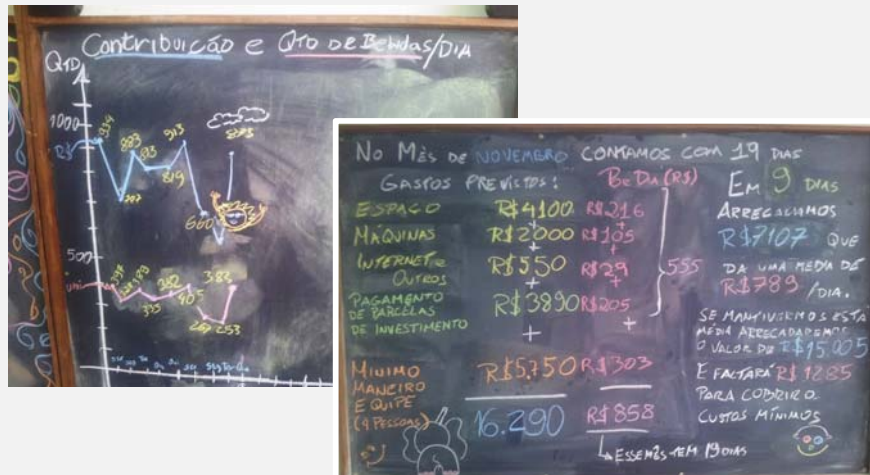 Contribuição e QTD DE Bebidas/DIA
QTD
1000
R$
934
883
813
819
913
873
660
500
uni
382
405
383
253
No Mês de NOVEMBRO CONTAMOS COM 19 DIAS
GASTOS PREVISTOS:
BeDia (R$)
ESPAÇO R$4100 R$216
+ +
MÁQUINAS R$2000 R$105
+ +
INTERNET e OUTROS R$550 R$29
+ +
PAGAMENTO DE PARCELAS DE INVESTIMENTO R$3890 R$205
555
+ +
MINIMO MANEIRO EQUIPE (9 PESSOAS) R$5.750 R$303
16.290 R$858
ESSE MÊS TEM 19 DIAS
EM 9 DIAS
ARRECADAMOS
R$7107 QUE
DA UMA MEDIA DE
R$789 /DIA.
SE MANTIVERMOS ESTA
MÉDIA ARRECADAREMOS
O VALOR DE R$15.005
E FALTARÁ R$1285
PARA COBRIR O
CUSTOS MÍNIMOS